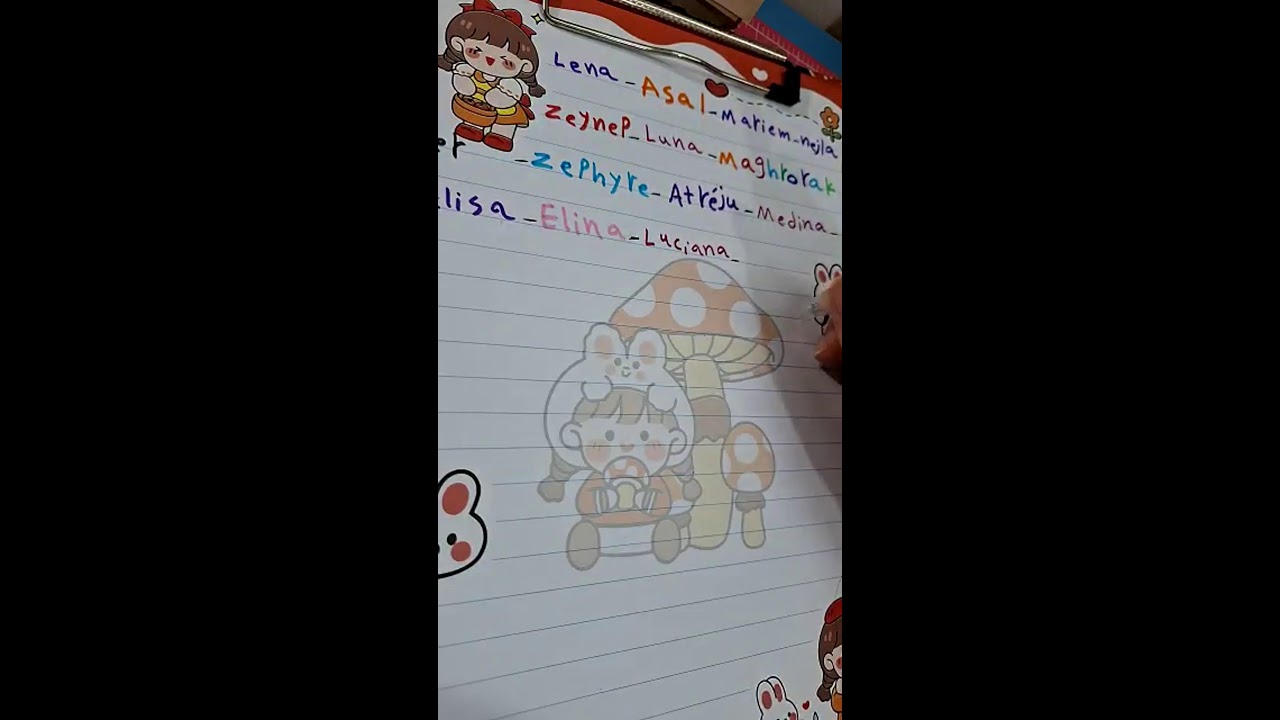 Lena - Asal - Mariem - nejla
Zeynep - Luna - Maghrorak
- Zephyre - Atréju - Medina -
lisa - Elina - Luciana -